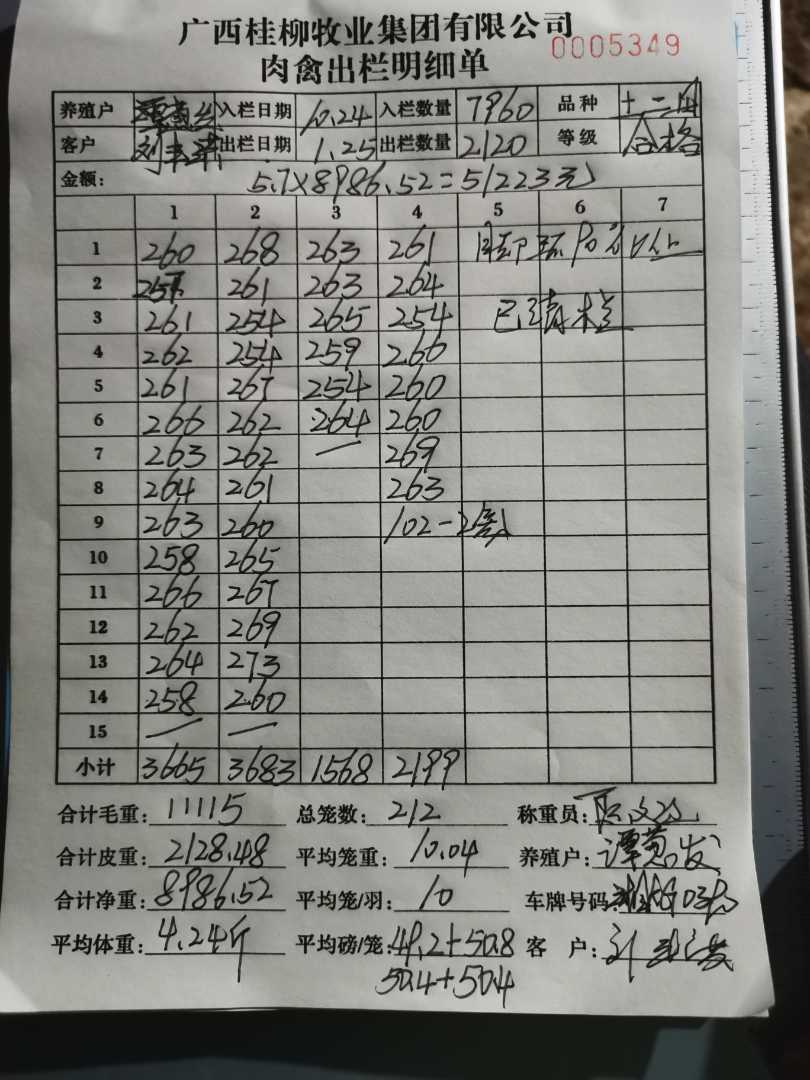 广西桂柳牧业集团有限公司
0005349
肉禽出栏明细单
养殖户 入栏日期 10.24 入栏数量 7960 品种
客户 出栏日期 1.25 出栏数量 2120 等级 合格
金额: 5.7×8986.52=51223元
1 2 3 4 5 6 7
1 260 268 263 261
2 257 261 263 264
3 261 254 265 254 已清栏
4 262 254 259 266
5 261 267 254 260
6 266 262 264 260
7 263 262 — 269
8 264 261 263
9 263 260 102-2
10 258 265
11 266 267
12 262 269
13 264 273
14 258 260
15 — —
小计 3665 3683 1568 2199
合计毛重: 11115 总笼数: 212 称重员:
合计皮重: 2128.48 平均笼重: 10.04 养殖户:
合计净重: 8986.52 平均笼/羽: 10 车牌号码:
平均体重: 4.24斤 平均磅/笼: 49.2+50.8 客户:
50.4+50.4